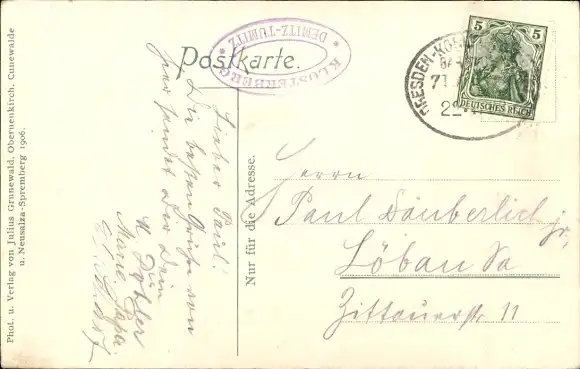 Postkarte.
KLOSTERBERG
DEMITZ-TUMITZ
5 5
DEUTSCHES REICH
DRESDEN
71
22
Lieber Paul!
Die besten Grüße von
hier sendet Dir Dein
Marie. Papa.
Nur für die Adresse.
Herrn
Paul Däuberlich jr,
Löbau Sa
Zittauerstr 11
Phot. u. Verlag von Julius Grunewald, Oberneukirch, Cunewalde
u. Neusalza-Spremberg 1906.